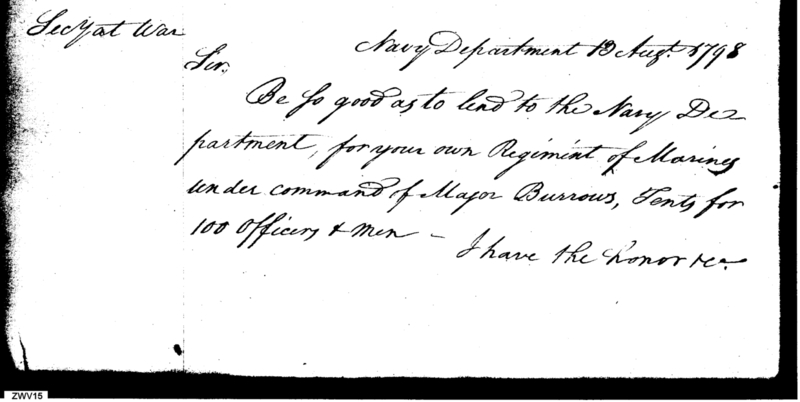 Secy at War
Navy Department 13 Augt. 1798
Sir.
Be so good as to lend to the Navy De-
partment, for your own Regiment of Marines
under command of Major Burrows, Tents for
100 Officers & men –
I have the honor &ca.
ZWV15